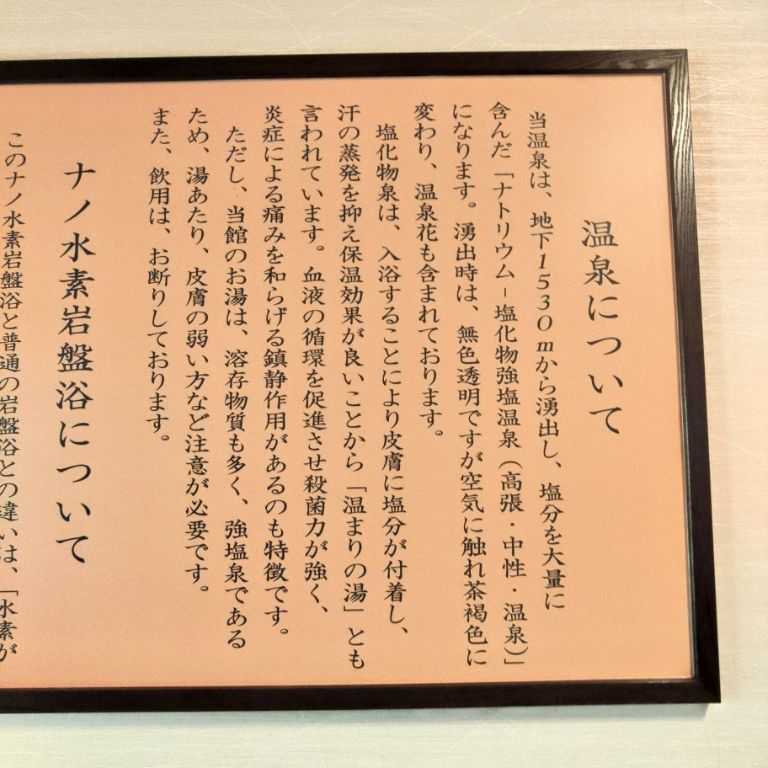 温泉について
当温泉は、地下1530mから湧出し、塩分を大量に
含んだ「ナトリウム-塩化物強塩温泉(高張・中性・温泉)」
になります。湧出時は、無色透明ですが空気に触れ茶褐色に
変わり、温泉花も含まれております。
塩化物泉は、入浴することにより皮膚に塩分が付着し、
汗の蒸発を抑え保温効果が良いことから「温まりの湯」とも
言われています。血液の循環を促進させ殺菌力が強く、
炎症による痛みを和らげる鎮静作用があるのも特徴です。
ただし、当館のお湯は、溶存物質も多く、強塩泉である
ため、湯あたり、皮膚の弱い方など注意が必要です。
また、飲用は、お断りしております。
ナノ水素岩盤浴について
このナノ水素岩盤浴と普通の岩盤浴との違いは、「水素が